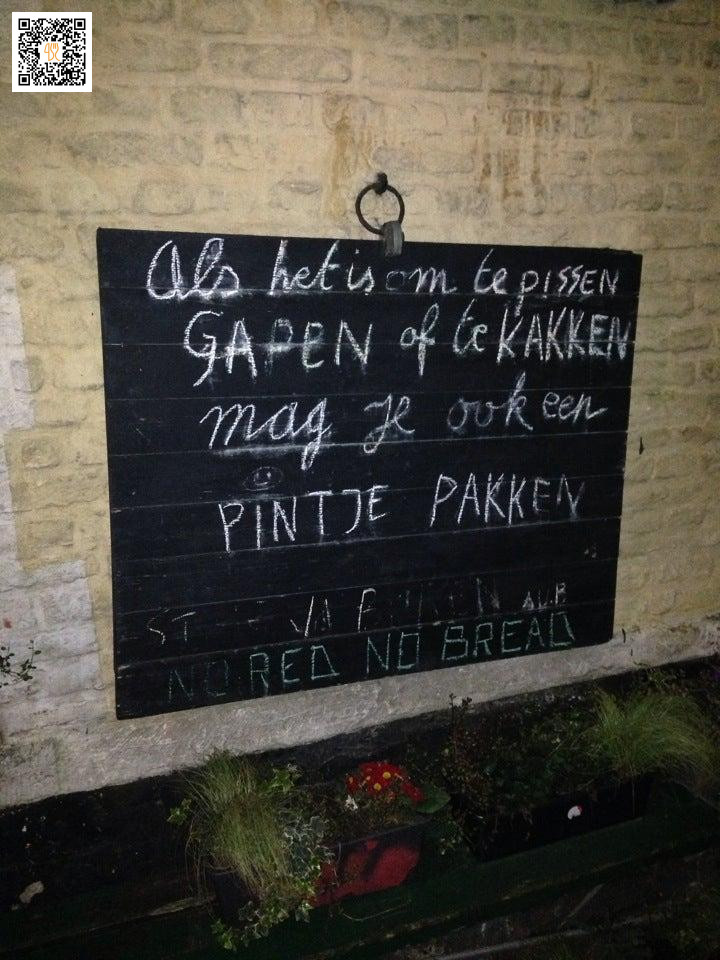 Als het is om te pissen
GAPEN of te KAKKEN
mag je ook een
PINTJE PAKKEN
AUB
NO RED NO BREAD